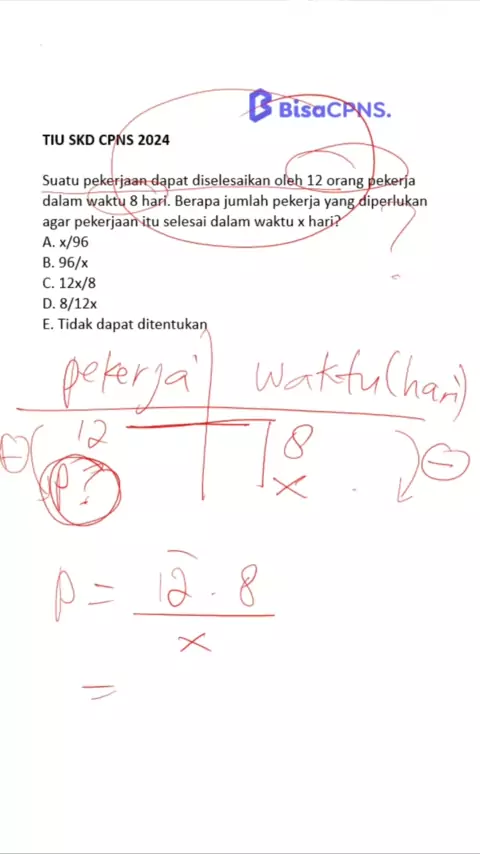 BisaCPNS.
TIU SKD CPNS 2024
Suatu pekerjaan dapat diselesaikan oleh 12 orang pekerja
dalam waktu 8 hari. Berapa jumlah pekerja yang diperlukan
agar pekerjaan itu selesai dalam waktu x hari?
A. x/96
B. 96/x
C. 12x/8
D. 8/12x
E. Tidak dapat ditentukan
?
pekerja waktu (hari)
12 8
p? x
p = 12 . 8
x
=